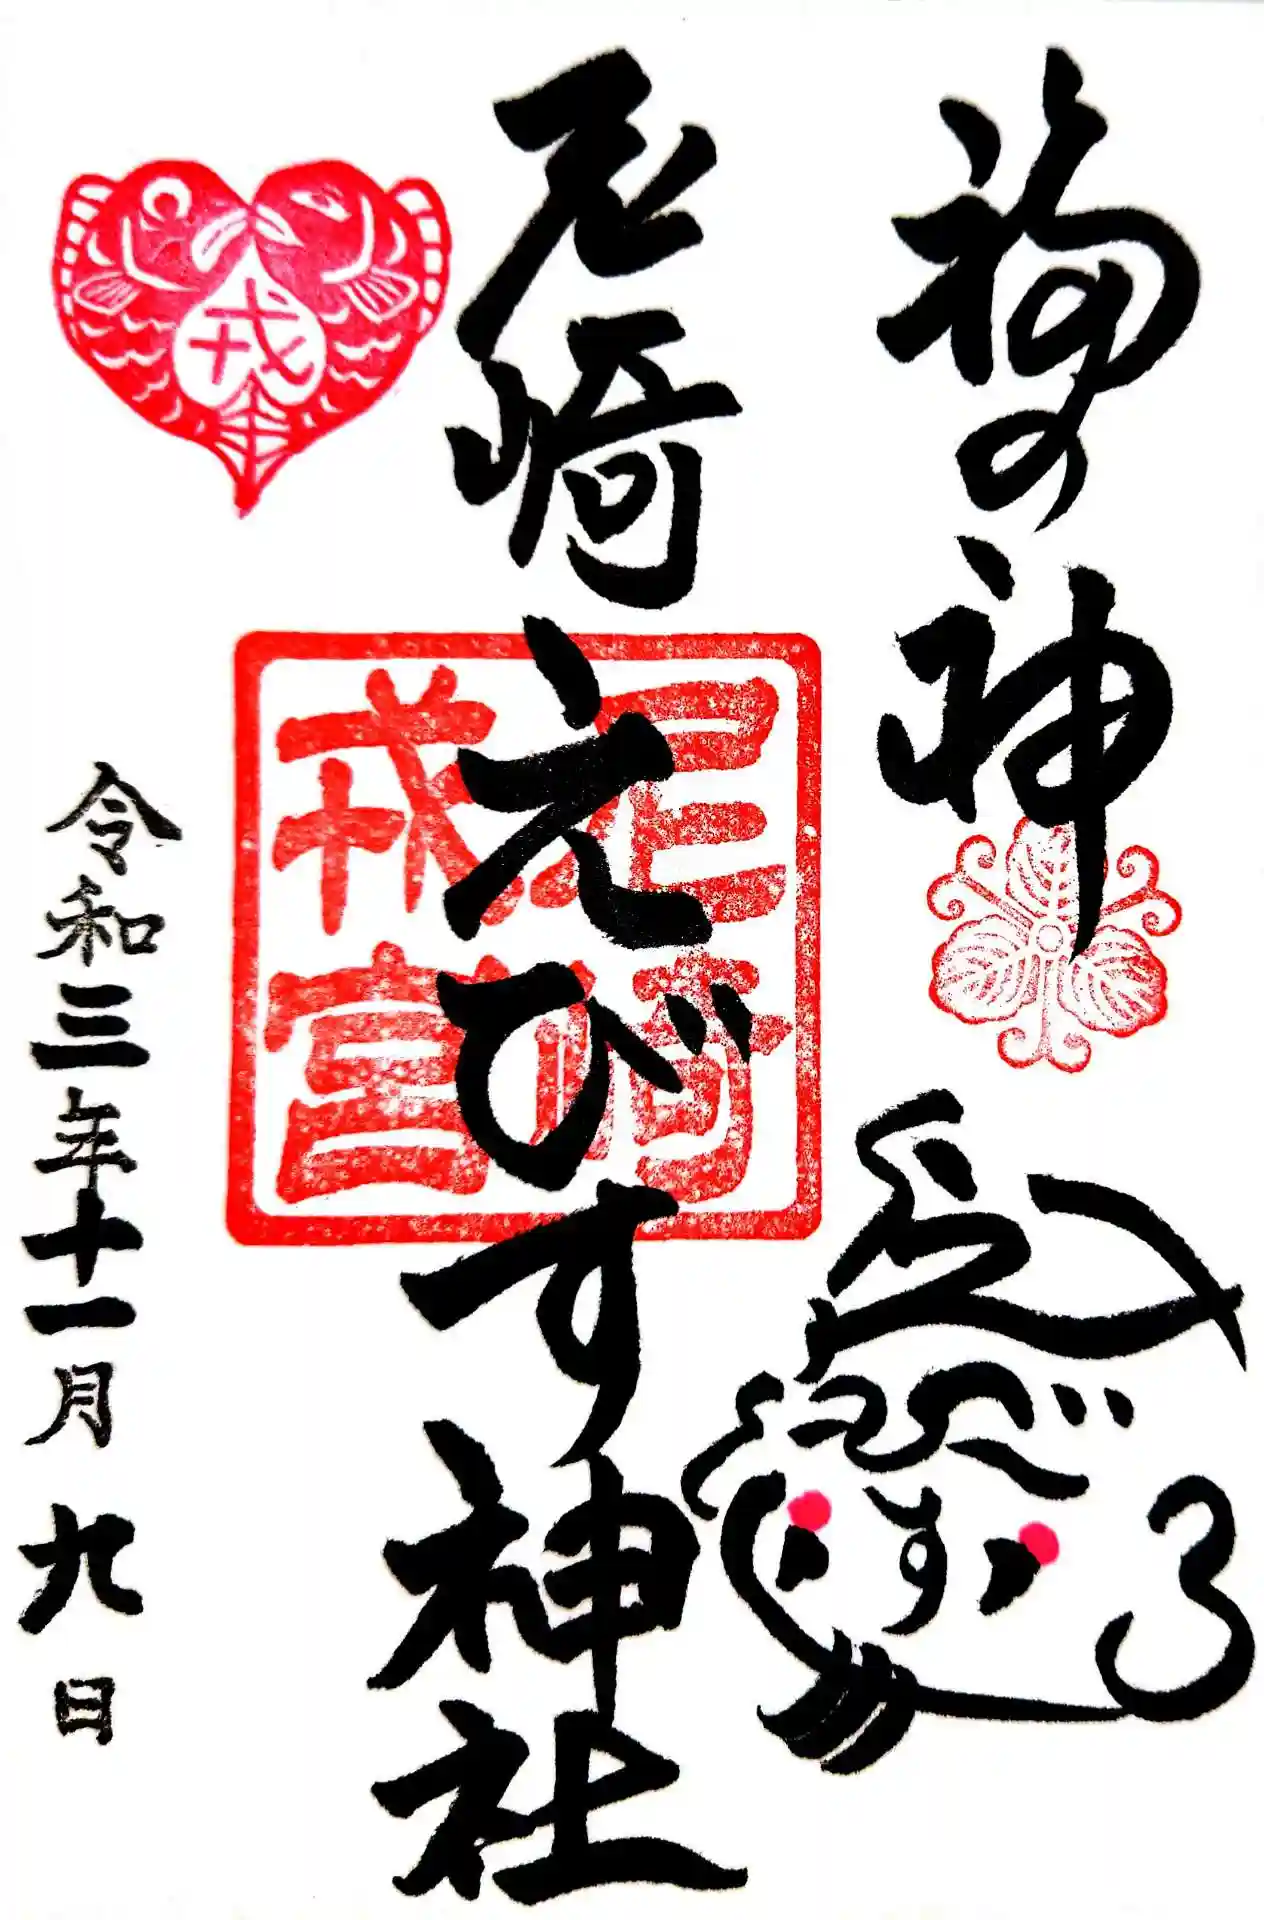 福の神
えびす
尼崎えびす神社
尼崎
戎宮
戎
令和三年十一月九日